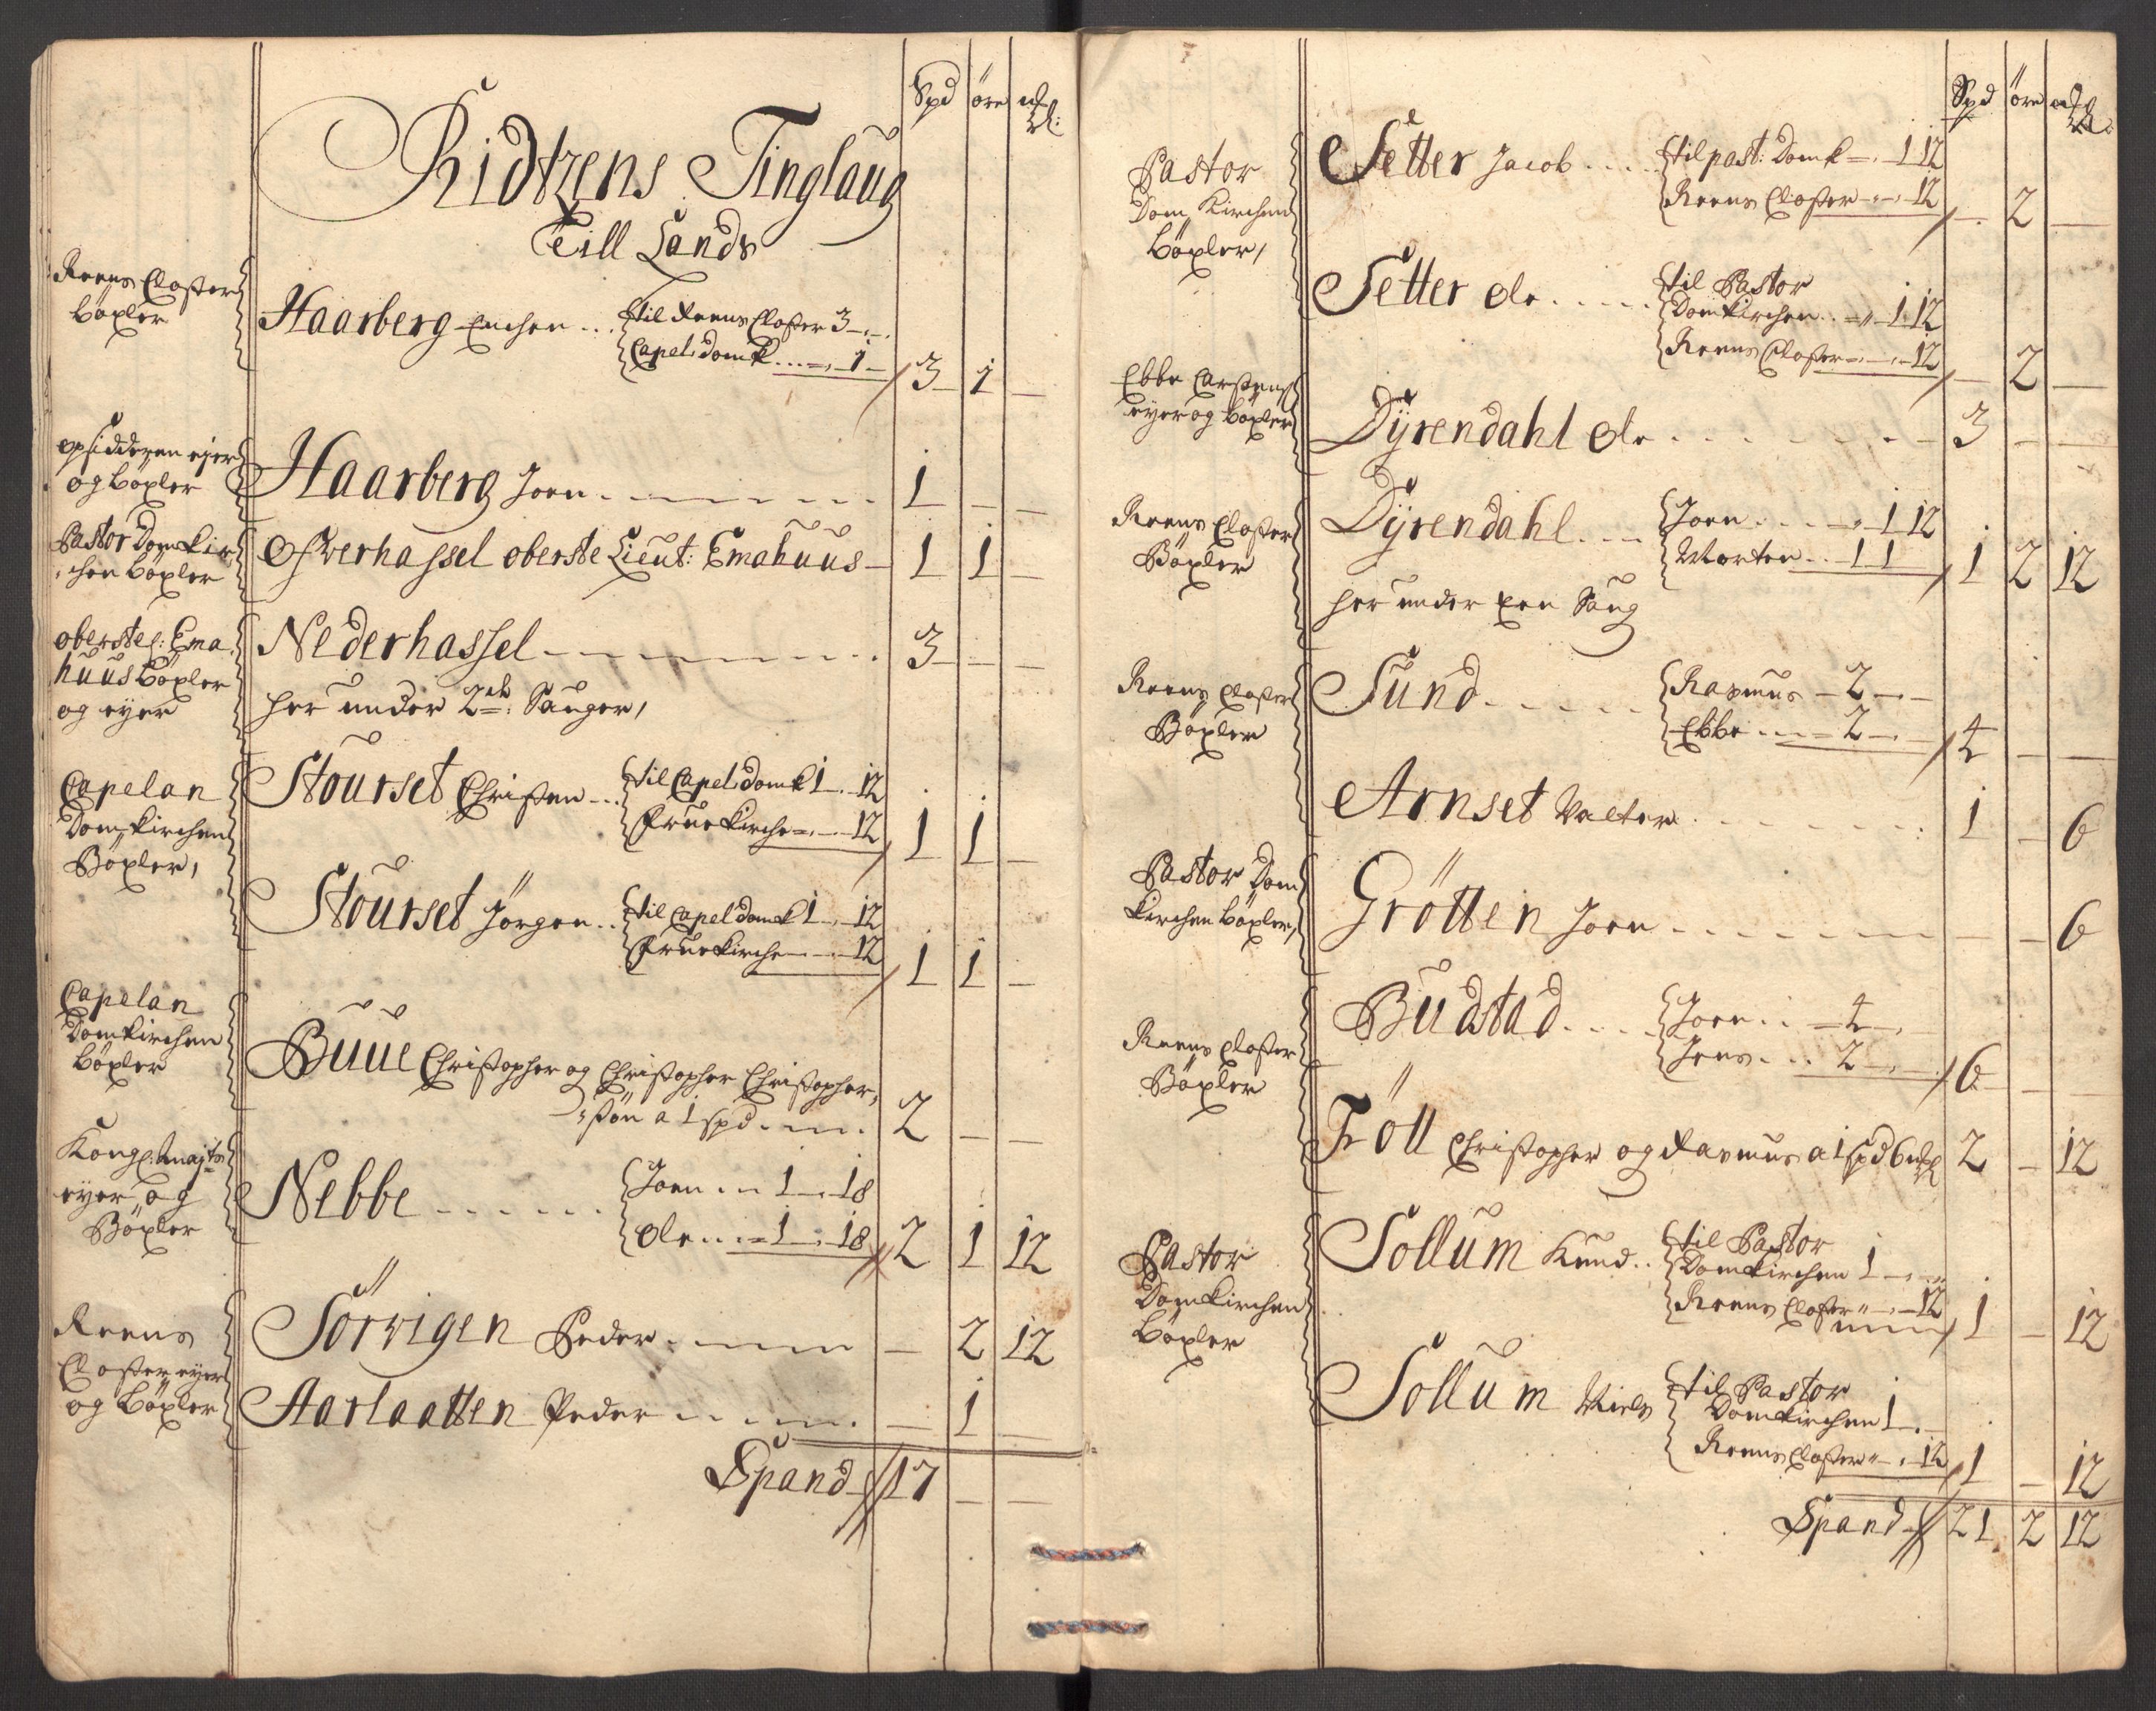 Spd öre mkl:
Ridtzens Tinglaug
Till Lands
Reens Closter
böxler
Haarberg Enchen ... til Reens Closter 3 - -
Capel: domk ... 1 -
3 1 -
opsidderen ejer
og böxler
Haarberg Joen 1 - -
Pastor Domkir-
chen böxler
Offuerhassel oberste Lieut: Emahuus - 1 1 -
oberstel: Ema
huus böxler
og eyer
Nederhassel 3 - -
her under 2de Sauger,
Capelan
Domkirchen
Böxler,
Stourset Christen ... til Capel: domk 1 - 12
Fruekirche - - 12
1 1 -
Stourset Jörgen .. til Capel domk 1 - 12
Fruekirche - 12
1 1 -
Capelan
Domkirchen
böxler
Buue Christopher og Christopher Christopher,
sön a 1 spd 2 - -
Kongl: Mayts
eyer og
Böxler
Nebbe Joen 1 - 18
Ole 1 - 18
2 1 12
Reens
Closter eyer
og böxler
Sörvigen Peder - 2 12
Aarlaatten Peder - 1 -
Spand 17 - -
Spd öre mkl
Pastor
Dom Kirchen
böxler,
Setter Jacob .... til past: Domk - 1 12
Reens Closter - - 12
- 2 -
Setter Ole til Pastor
Domkirchen .. - 1 12
Reens Closter - - 12
- 2 -
Ebbe Carstens
eyer og böxler
Dÿrendahl Ole 3 - -
Reens Closter
Böxler
Dÿrendahl Joen - 1 12
Morten .. 1 1
1 2 12
her under een Saug
Reens Closter
Böxler
Sund Rasmus - 2 - -
Ebbe - 2 - -
4 - -
Arnset Valter 1 - 6
Pastor Dom
kirchen böxler,
Grötten Joen - - 6
Reens Closter
Böxler
Budstad Joen - 4 -
Jens 2 - -
6 - -
Föll Christopher og Rasmus a 1 spd 6 mkl 2 - 12
Pastor
Domkirchen
böxler
Sollum Knud .. til Pastor
Domkirchen 1 - -
Reens Closter - 12
1 - 12
Sollum Niels til Pastor
Domkirchen 1 -
Reens Closter - 12
1 - 12
Spand 21 2 12